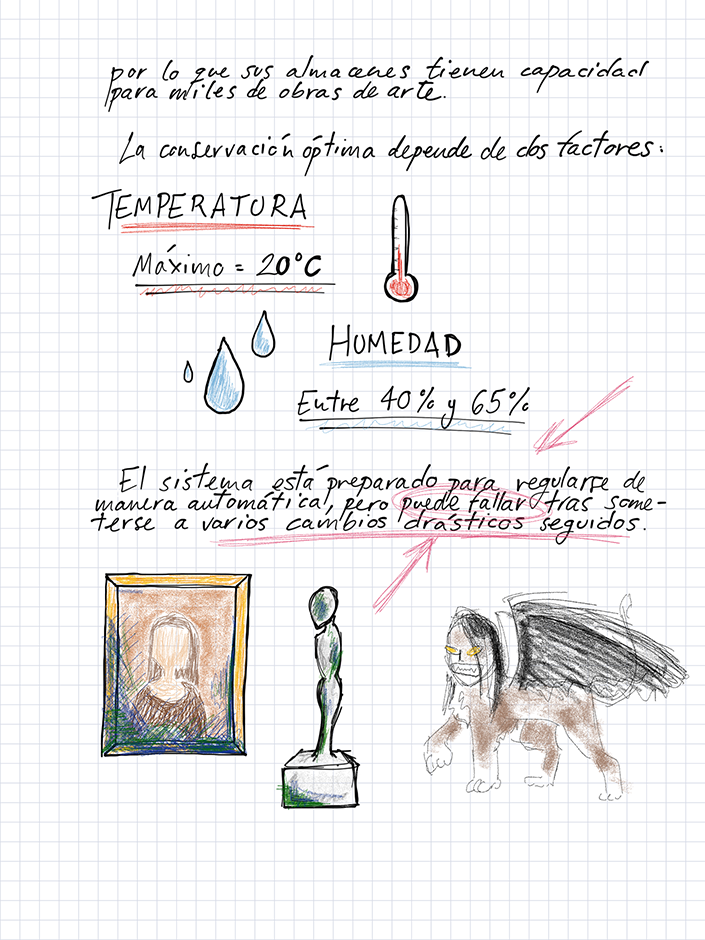 por lo que sus almacenes tienen capacidad
para miles de obras de arte.
La conservación óptima depende de dos factores:
TEMPERATURA
Máximo = 20°C
HUMEDAD
Entre 40% y 65%
El sistema está preparado para regularse de
manera automática, pero puede fallar tras some-
terse a varios cambios drásticos seguidos.